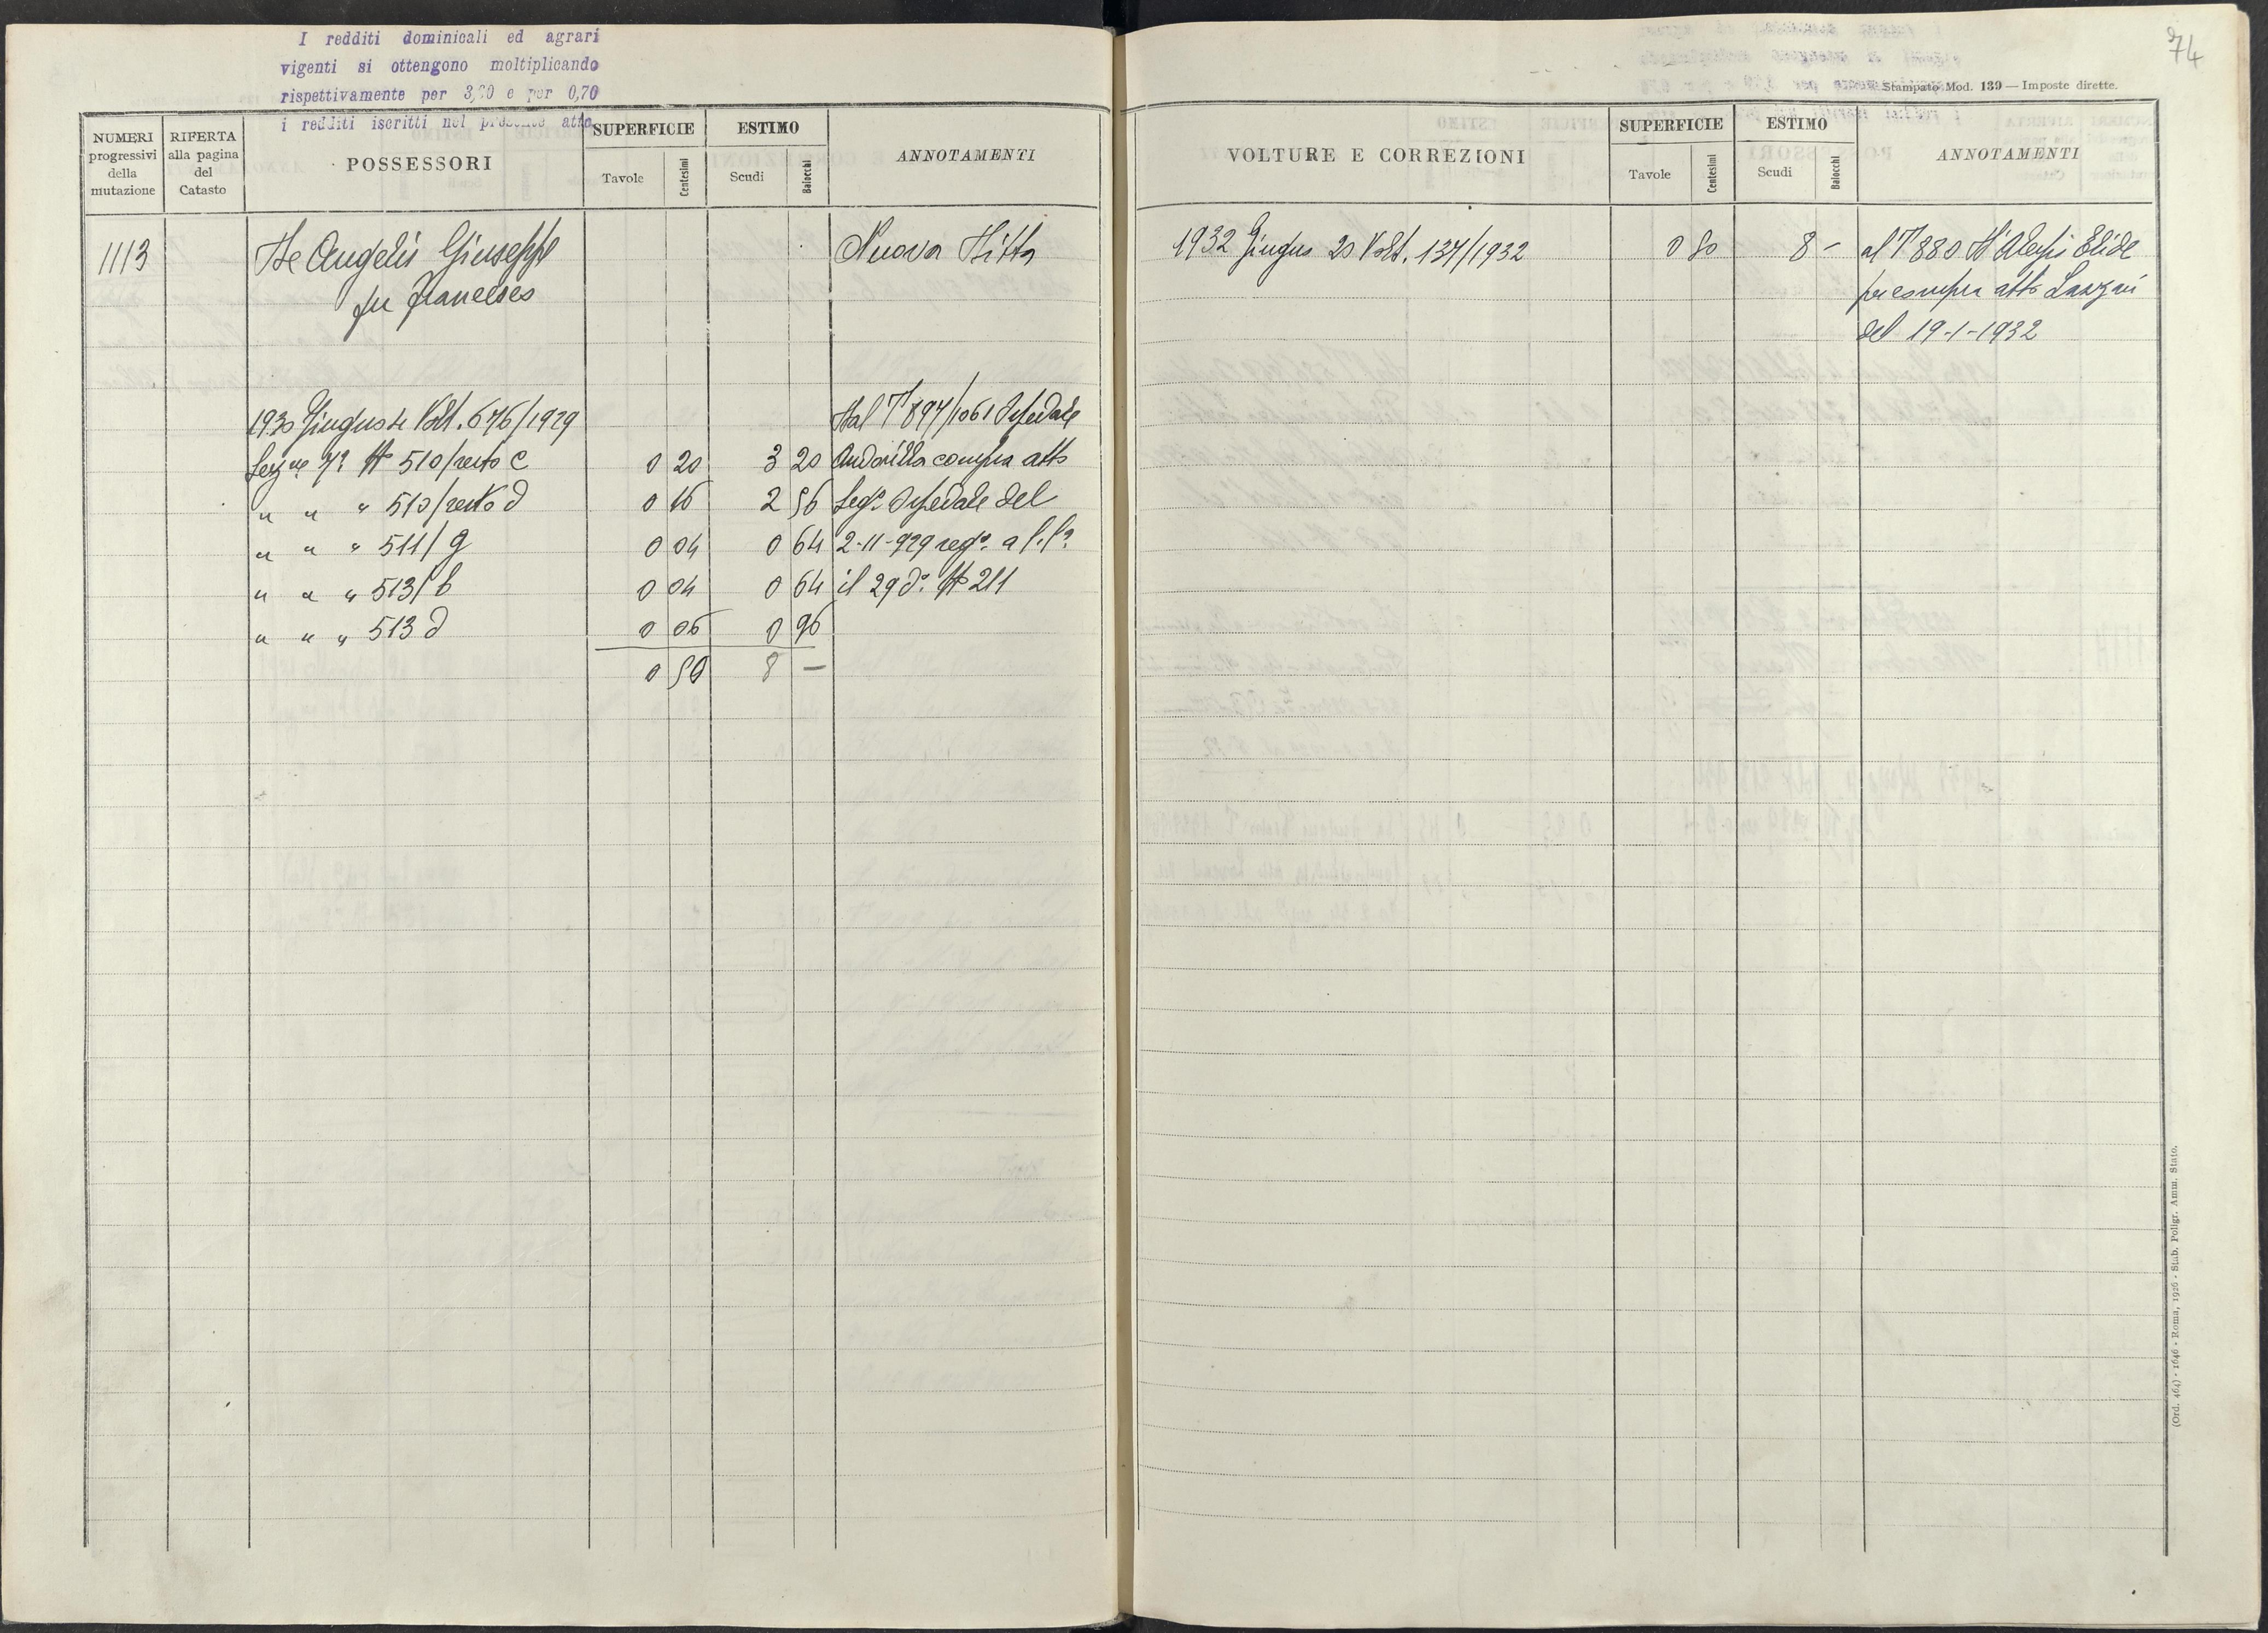 I redditi dominicali ed agrari
vigenti si ottengono moltiplicando
rispettivamente per 3,20 e per 0,70
i redditi iscritti nel presente atto
NUMERI progressivi della mutazione
RIFERTA alla pagina del Catasto
POSSESSORI
SUPERFICIE
Tavole
Centesimi
ESTIMO
Scudi
Baiocchi
ANNOTAMENTI
1113
De Angelis Giuseppe
Nuova Ditta
fu Francesco
1930 Giugno 4 Volt. 676/1929
Dal T 894/1061 Ospedale
Sez ne 7a N 510/resto c 0 20 3 20
compra atto
" " " 510/resto d 0 16 2 56
Seg. Ospedale del
" " " 511/g 0 04 0 64
2-11-929 reg.
" " " 513/b 0 04 0 64
il 29 do N 211
" " " 513 d 0 06 0 96
0 50 8 —
74
Stampato Mod. 139 — Imposte dirette.
VOLTURE E CORREZIONI
SUPERFICIE
Tavole
Centesimi
ESTIMO
Scudi
Baiocchi
ANNOTAMENTI
1932 Giugno 20 Volt. 134/1932 0 50 8 -
al T 880 D'Alessi Elide
per compra atto
del 19-1-1932
(Ord. 464) - 1646 - Roma, 1926 - Stab. Poligr. Amm. Stato.